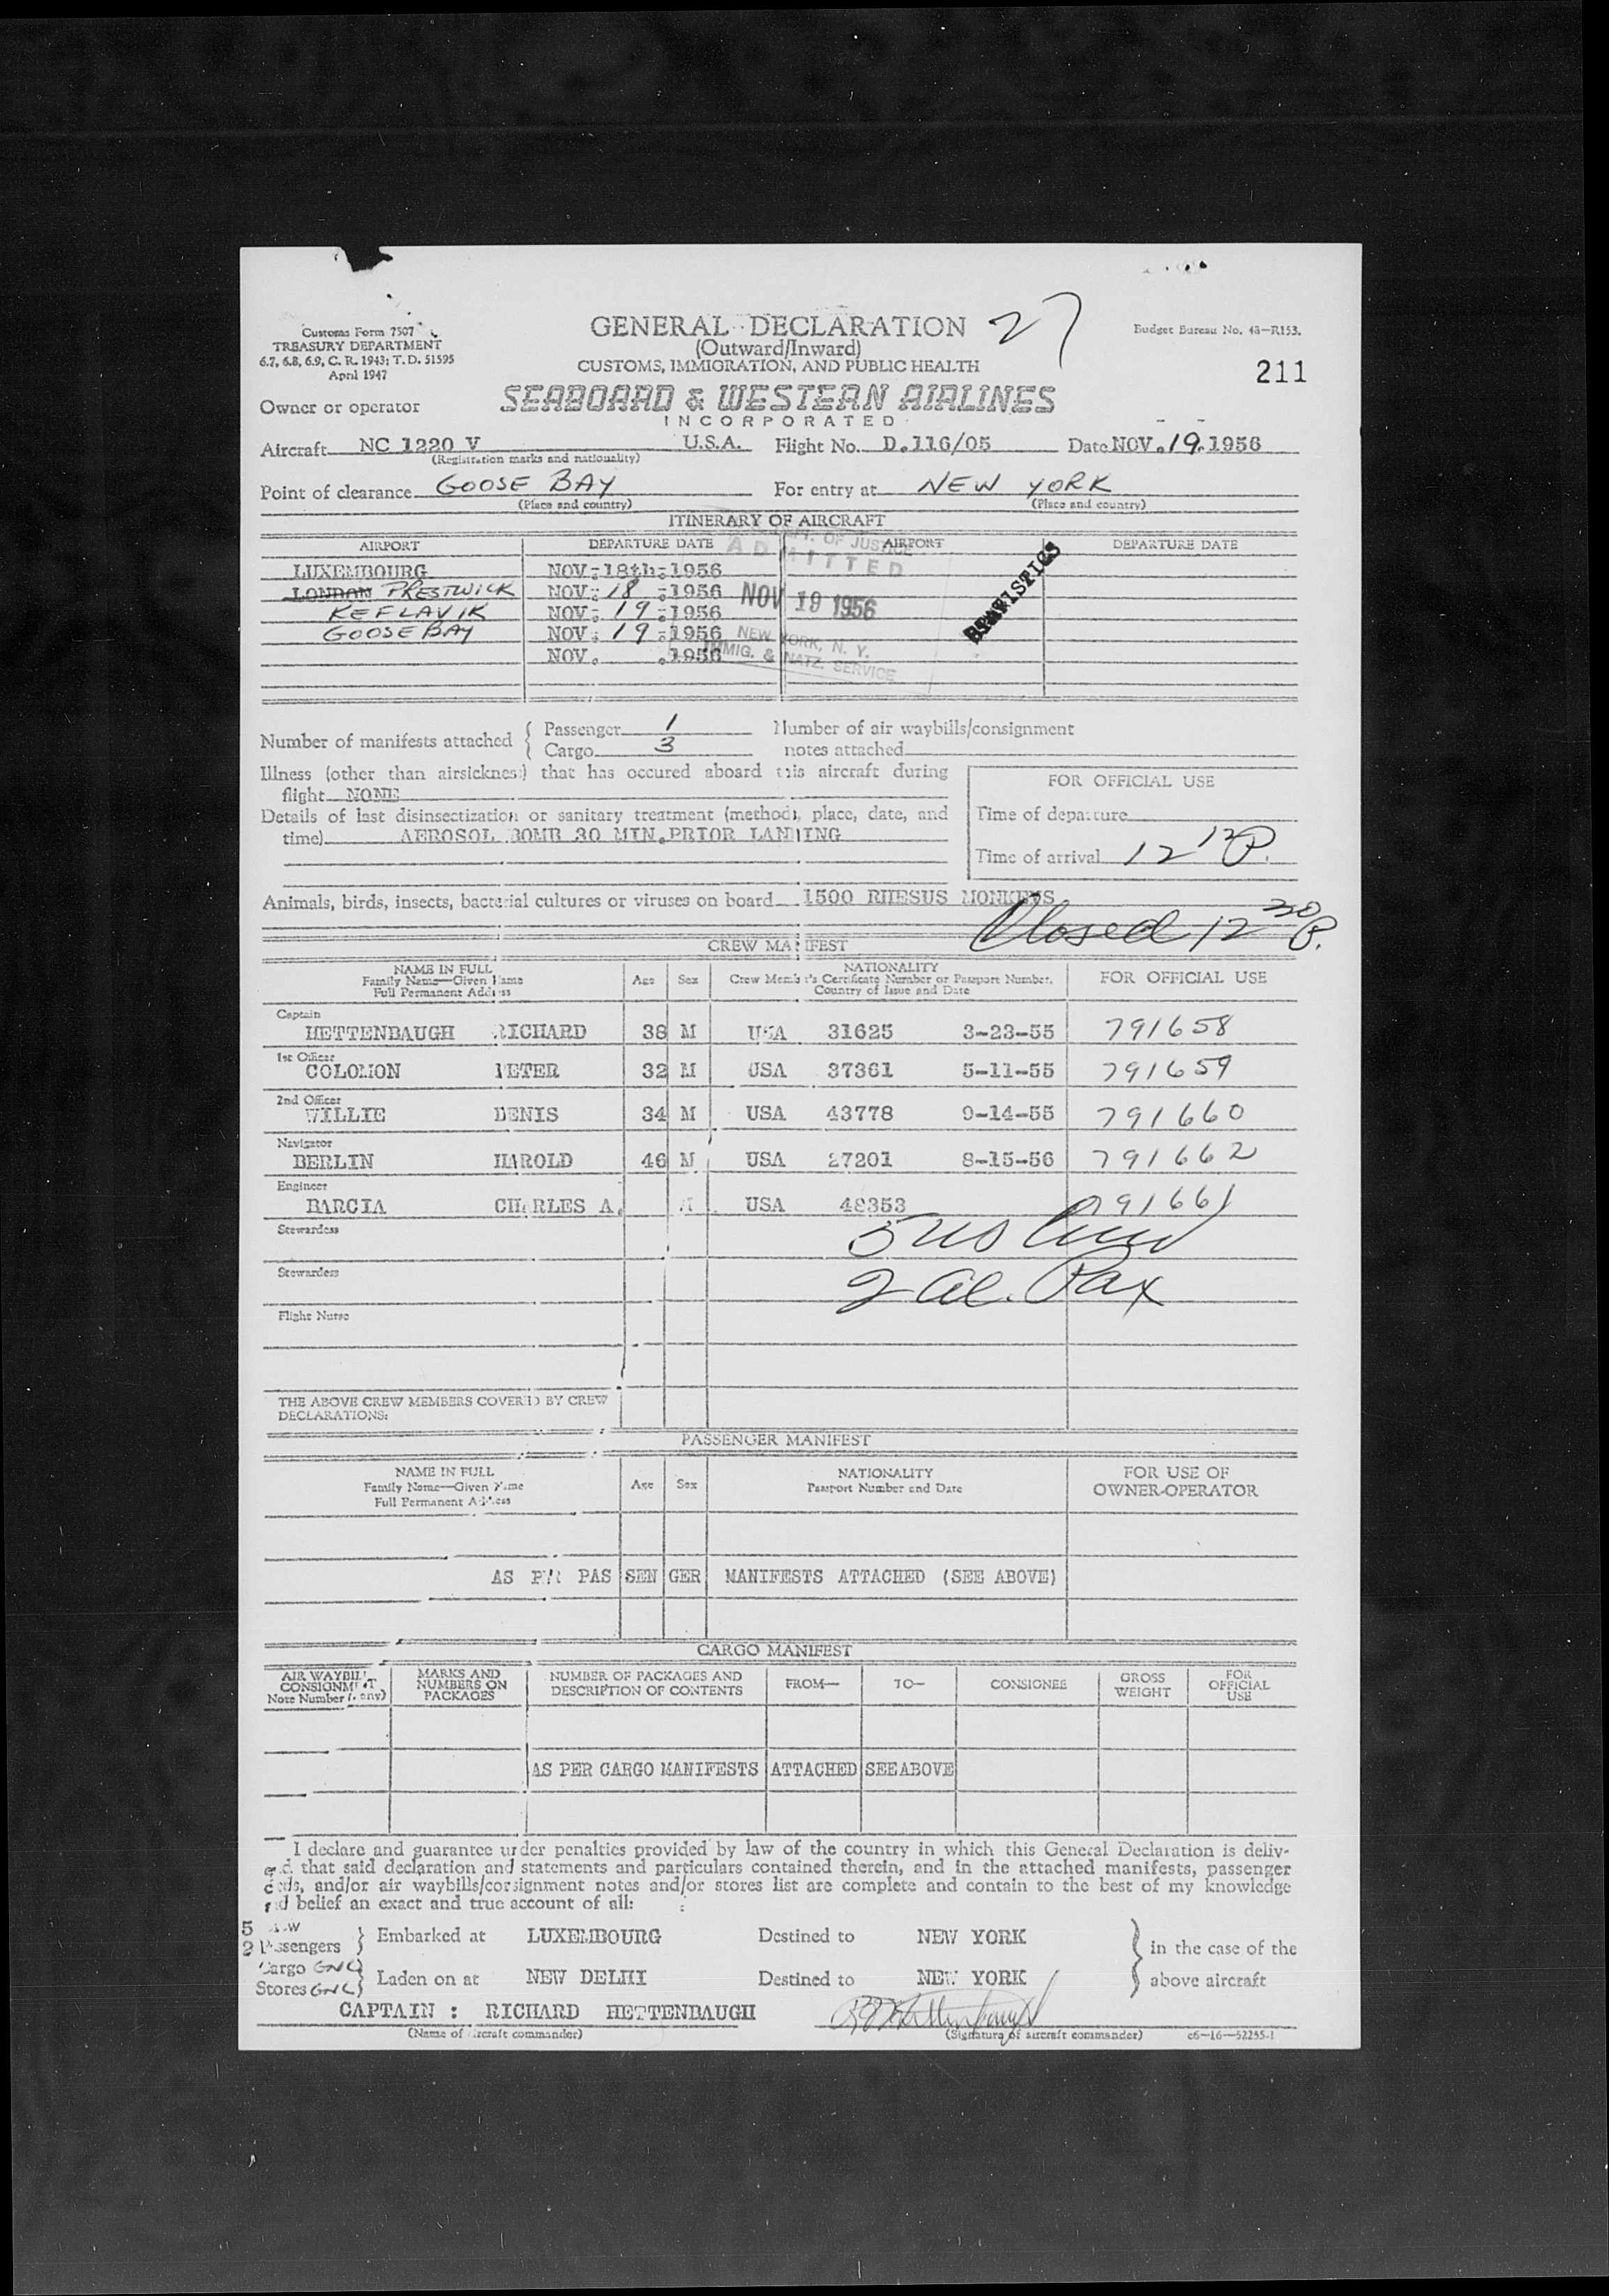 Customs Form 7507
TREASURY DEPARTMENT
6.7, 6.8, 6.9, C. R. 1943; T. D. 51595
April 1947
GENERAL DECLARATION
(Outward/Inward)
CUSTOMS, IMMIGRATION, AND PUBLIC HEALTH
27
Budget Bureau No. 48-R153.
211
Owner or operator
SEABOARD & WESTERN AIRLINES
INCORPORATED
Aircraft NC 1220 V U.S.A. Flight No. D.116/05 Date NOV.19.1956
(Registration marks and nationality)
Point of clearance GOOSE BAY For entry at NEW YORK
(Place and country) (Place and country)
ITINERARY OF AIRCRAFT
AIRPORT DEPARTURE DATE AIRPORT DEPARTURE DATE
LUXEMBOURG NOV.18th.1956
LONDON PRESTWICK NOV. 18 .1956
KEFLAVIK NOV. 19 .1956
GOOSE BAY NOV. 19 .1956
NOV. .1956
DEPT. OF JUSTICE
ADMITTED
NOV 19 1956
NEW YORK, N. Y.
IMMIG. & NATZ. SERVICE
STATISTICS
Number of manifests attached { Passenger 1 Number of air waybills/consignment
Cargo 3 notes attached
Illness (other than airsickness) that has occured aboard this aircraft during
flight NONE
FOR OFFICIAL USE
Details of last disinsectization or sanitary treatment (method, place, date, and
time) AEROSOL BOMB 30 MIN.PRIOR LANDING
Time of departure
Time of arrival 12 12 P.
Animals, birds, insects, bacterial cultures or viruses on board 1500 RHESUS MONKEYS
Closed 12 30 P.
CREW MANIFEST
NAME IN FULL
Family Name—Given Name
Full Permanent Address
Age Sex
NATIONALITY
Crew Member's Certificate Number or Passport Number.
Country of Issue and Date
FOR OFFICIAL USE
Captain
HETTENBAUGH RICHARD 38 M USA 31625 3-23-55 791658
1st Officer
COLOMON PETER 32 M USA 37361 5-11-55 791659
2nd Officer
WILLIE DENIS 34 M USA 43778 9-14-55 791660
Navigator
BERLIN HAROLD 46 M USA 27201 8-15-56 791662
Engineer
BARCIA CHARLES A. M USA 48353 791661
Stewardess
5 US Crew
Stewardess
2 al. Pax
Flight Nurse
THE ABOVE CREW MEMBERS COVERED BY CREW
DECLARATIONS:
PASSENGER MANIFEST
NAME IN FULL
Family Name—Given Name
Full Permanent Address
Age Sex
NATIONALITY
Passport Number and Date
FOR USE OF
OWNER-OPERATOR
AS PER PAS SEN GER MANIFESTS ATTACHED (SEE ABOVE)
CARGO MANIFEST
AIR WAYBILL
CONSIGNMENT
Note Number (if any)
MARKS AND
NUMBERS ON
PACKAGES
NUMBER OF PACKAGES AND
DESCRIPTION OF CONTENTS
FROM— TO— CONSIGNEE
GROSS
WEIGHT
FOR
OFFICIAL
USE
AS PER CARGO MANIFESTS ATTACHED SEE ABOVE
I declare and guarantee under penalties provided by law of the country in which this General Declaration is deliv-
ered, that said declaration and statements and particulars contained therein, and in the attached manifests, passenger
cards, and/or air waybills/consignment notes and/or stores list are complete and contain to the best of my knowledge
and belief an exact and true account of all:
5 Crew
2 Passengers } Embarked at LUXEMBOURG Destined to NEW YORK } in the case of the
Cargo GNC
Stores GNC } Laden on at NEW DELHI Destined to NEW YORK above aircraft
CAPTAIN : RICHARD HETTENBAUGH
(Name of aircraft commander) (Signature of aircraft commander) c6—16—52255-1